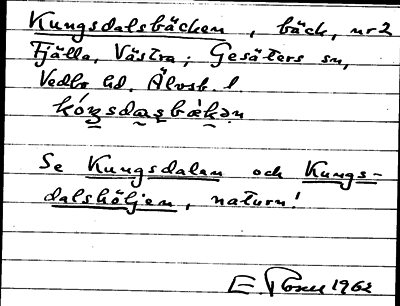 Kungsdalsbäcken, bäck, nr 2
Fjälla, Västra; Gesäters sn,
Vedbo hd. Älvsb. l
kóŋsdaʂbæ̀kən
Se Kungsdalen och Kungs-
dalshöljen, naturn!
E 1962